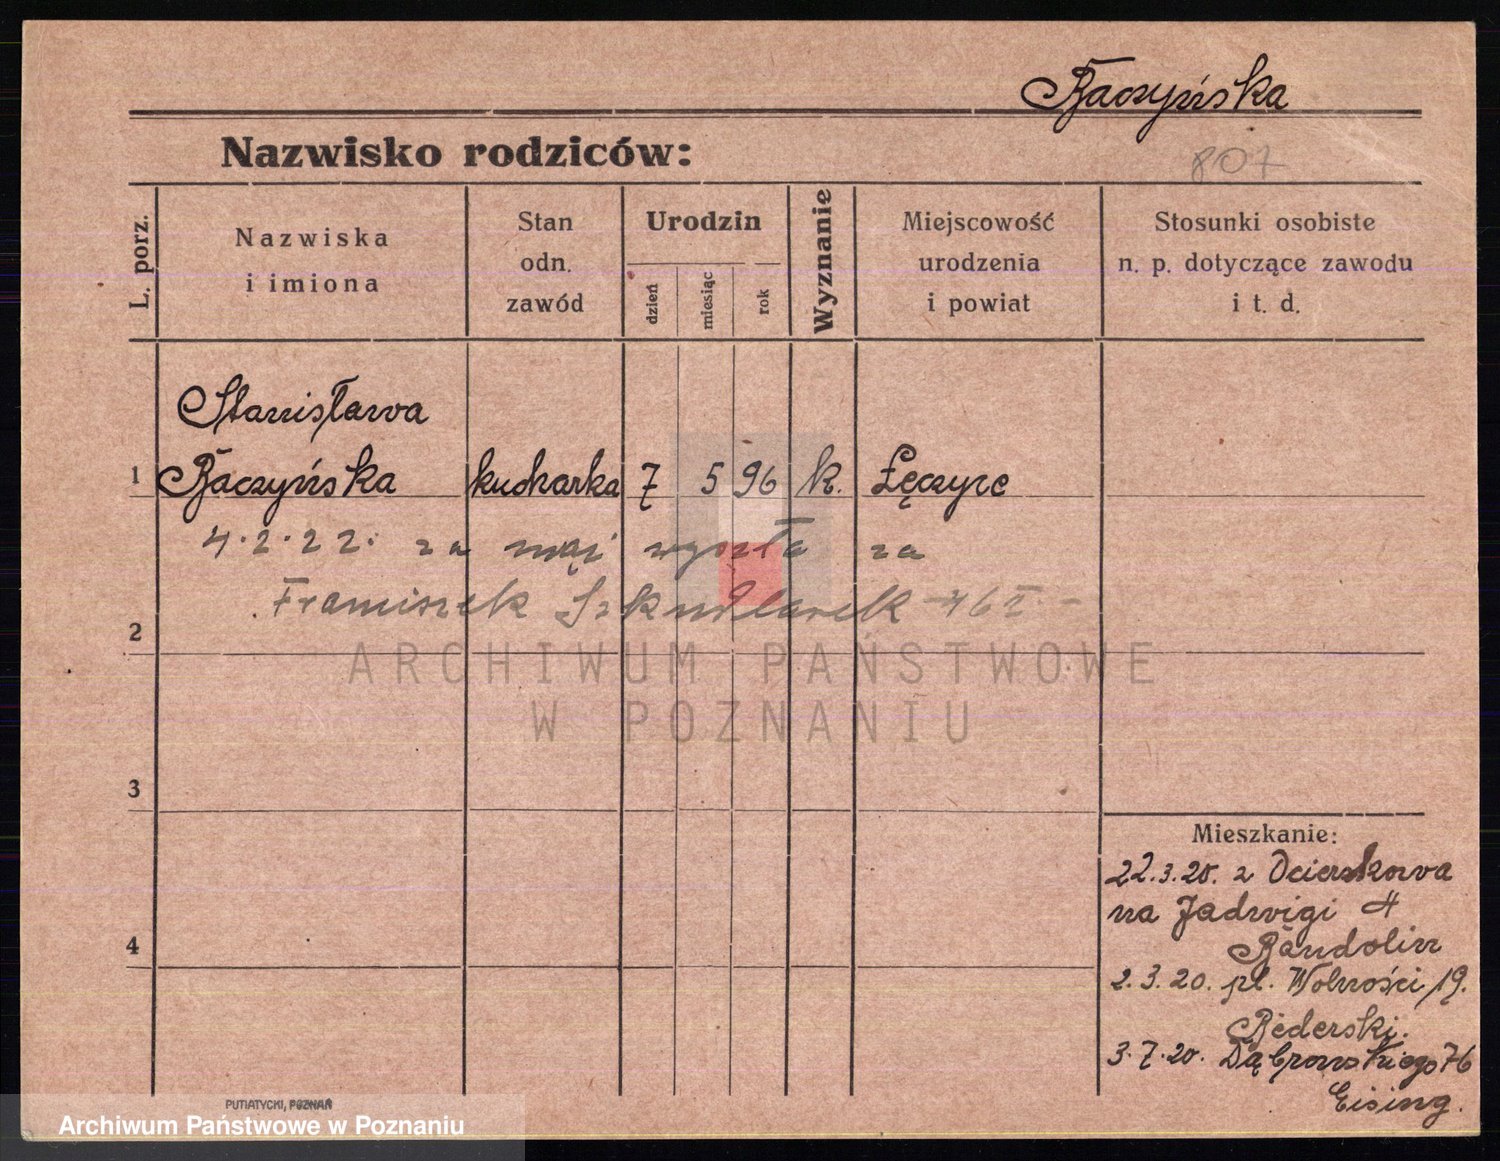 Raczyńska
807
Nazwisko rodziców:
L. porz.
Nazwiska
i imiona
Stan
odn.
zawód
Urodzin
dzień
miesiąc
rok
Wyznanie
Miejscowość
urodzenia
i powiat
Stosunki osobiste
n. p. dotyczące zawodu
i t. d.
Stanisława
1 Raczyńska kucharka 7 5 96 k. Łęczyce
4.2.22. za mąż wyszła za
Franciszek Szkudlarek
2
ARCHIWUM PAŃSTWOWE
W POZNANIU
3
4
Mieszkanie:
22.3.20. z
na Jadwigi 4
Bandolin
2.3.20. pl. Wolności 19.
Rederski.
3.7.20. Dąbrowskiego 76
Eising.
PUTIATYCKI, POZNAŃ
Archiwum Państwowe w Poznaniu